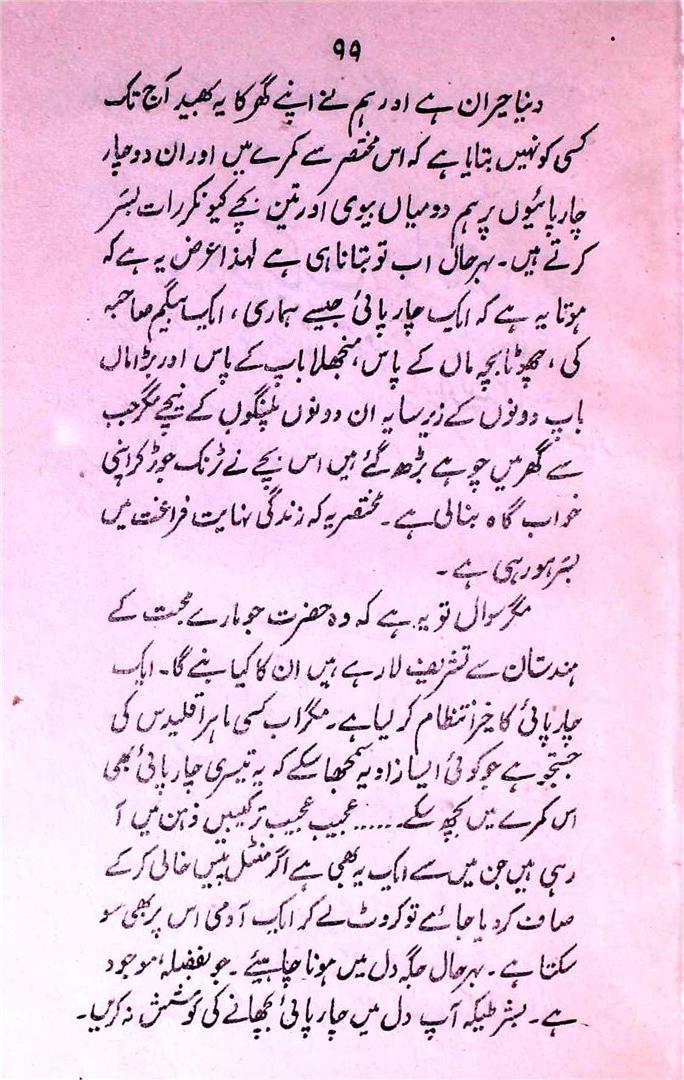 ۹۹
دنیا حیران ہے اور ہم نے اپنے گھر کا یہ بھید آج تک
کسی کو نہیں بتایا ہے کہ اس مختصر سے کمرے میں اور ان دو چار
چارپائیوں پر ہم دو میاں بیوی اور تین بچے کیونکر رات بسر
کرتے ہیں۔ بہرحال اب تو بتانا ہی ہے لہذا عرض یہ ہے کہ
ہوتا یہ ہے کہ ایک چارپائی جیسے ہماری، ایک بیگم صاحبہ
کی، چھوٹا بچہ ماں کے پاس، منجھلا باپ کے پاس اور بڑا ماں
باپ دونوں کے زیر سایہ ان دونوں پلنگوں کے نیچے مگر جب
سے گھر میں چوہے بڑھ گئے ہیں اس بچے نے ٹرنک جوڑ کر اپنی
خواب گاہ بنالی ہے۔ مختصر یہ کہ زندگی نہایت فراغت میں
بسر ہو رہی ہے۔
مگر سوال تو یہ ہے کہ وہ حضرت جو مارے محبت کے
ہندستان سے تشریف لا رہے ہیں ان کا کیا بنے گا۔ ایک
چارپائی کا خیر انتظام کر لیا ہے۔ مگر اب کسی ماہر اقلیدس کی
جستجو ہے جو کوئی ایسا زاویہ سمجھا سکے کہ یہ تیسری چارپائی بھی
اس کمرے میں بچھ سکے ..... عجیب عجیب ترکیبیں ذہن میں آ
رہی ہیں جن میں سے ایک یہ بھی ہے اگر منٹل پیس خالی کر کے
صاف کر دیا جائے تو کروٹ لے کر ایک آدمی اس پر بھی سو
سکتا ہے۔ بہرحال جگہ دل میں ہونا چاہیئے۔ جو بفضلہ، موجود
ہے۔ بشرطیکہ آپ دل میں چارپائی بچھانے کی کوشش نہ کریں۔